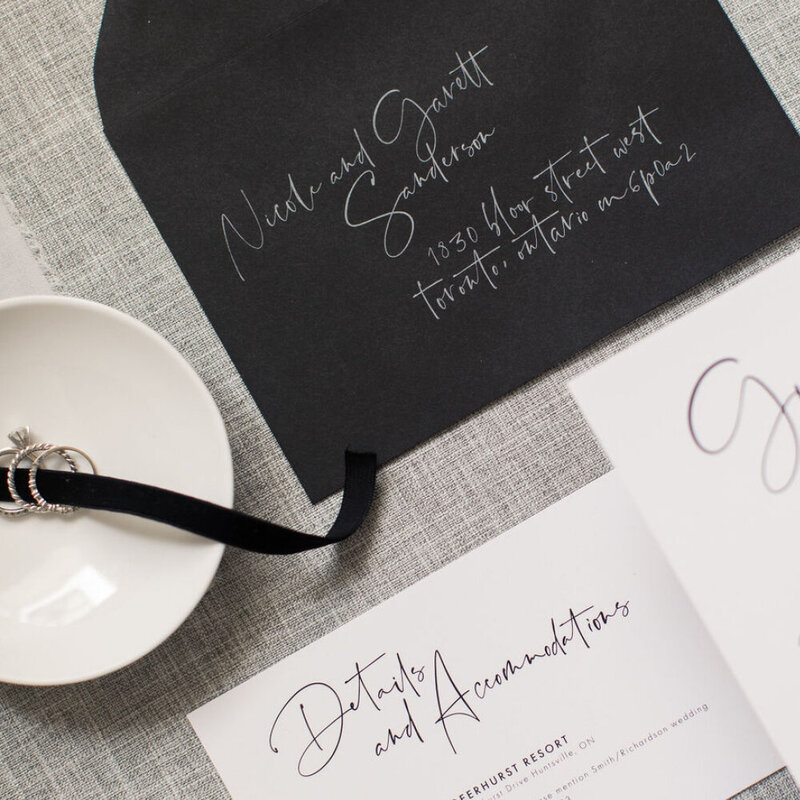 Nicole and Garett
Sanderson
1830 bloor street west
toronto, ontario on 6p0a2
Details
and Accommodations
FERHURST RESORT
Drive Huntsville, ON
mention Smith/Richardson wedding